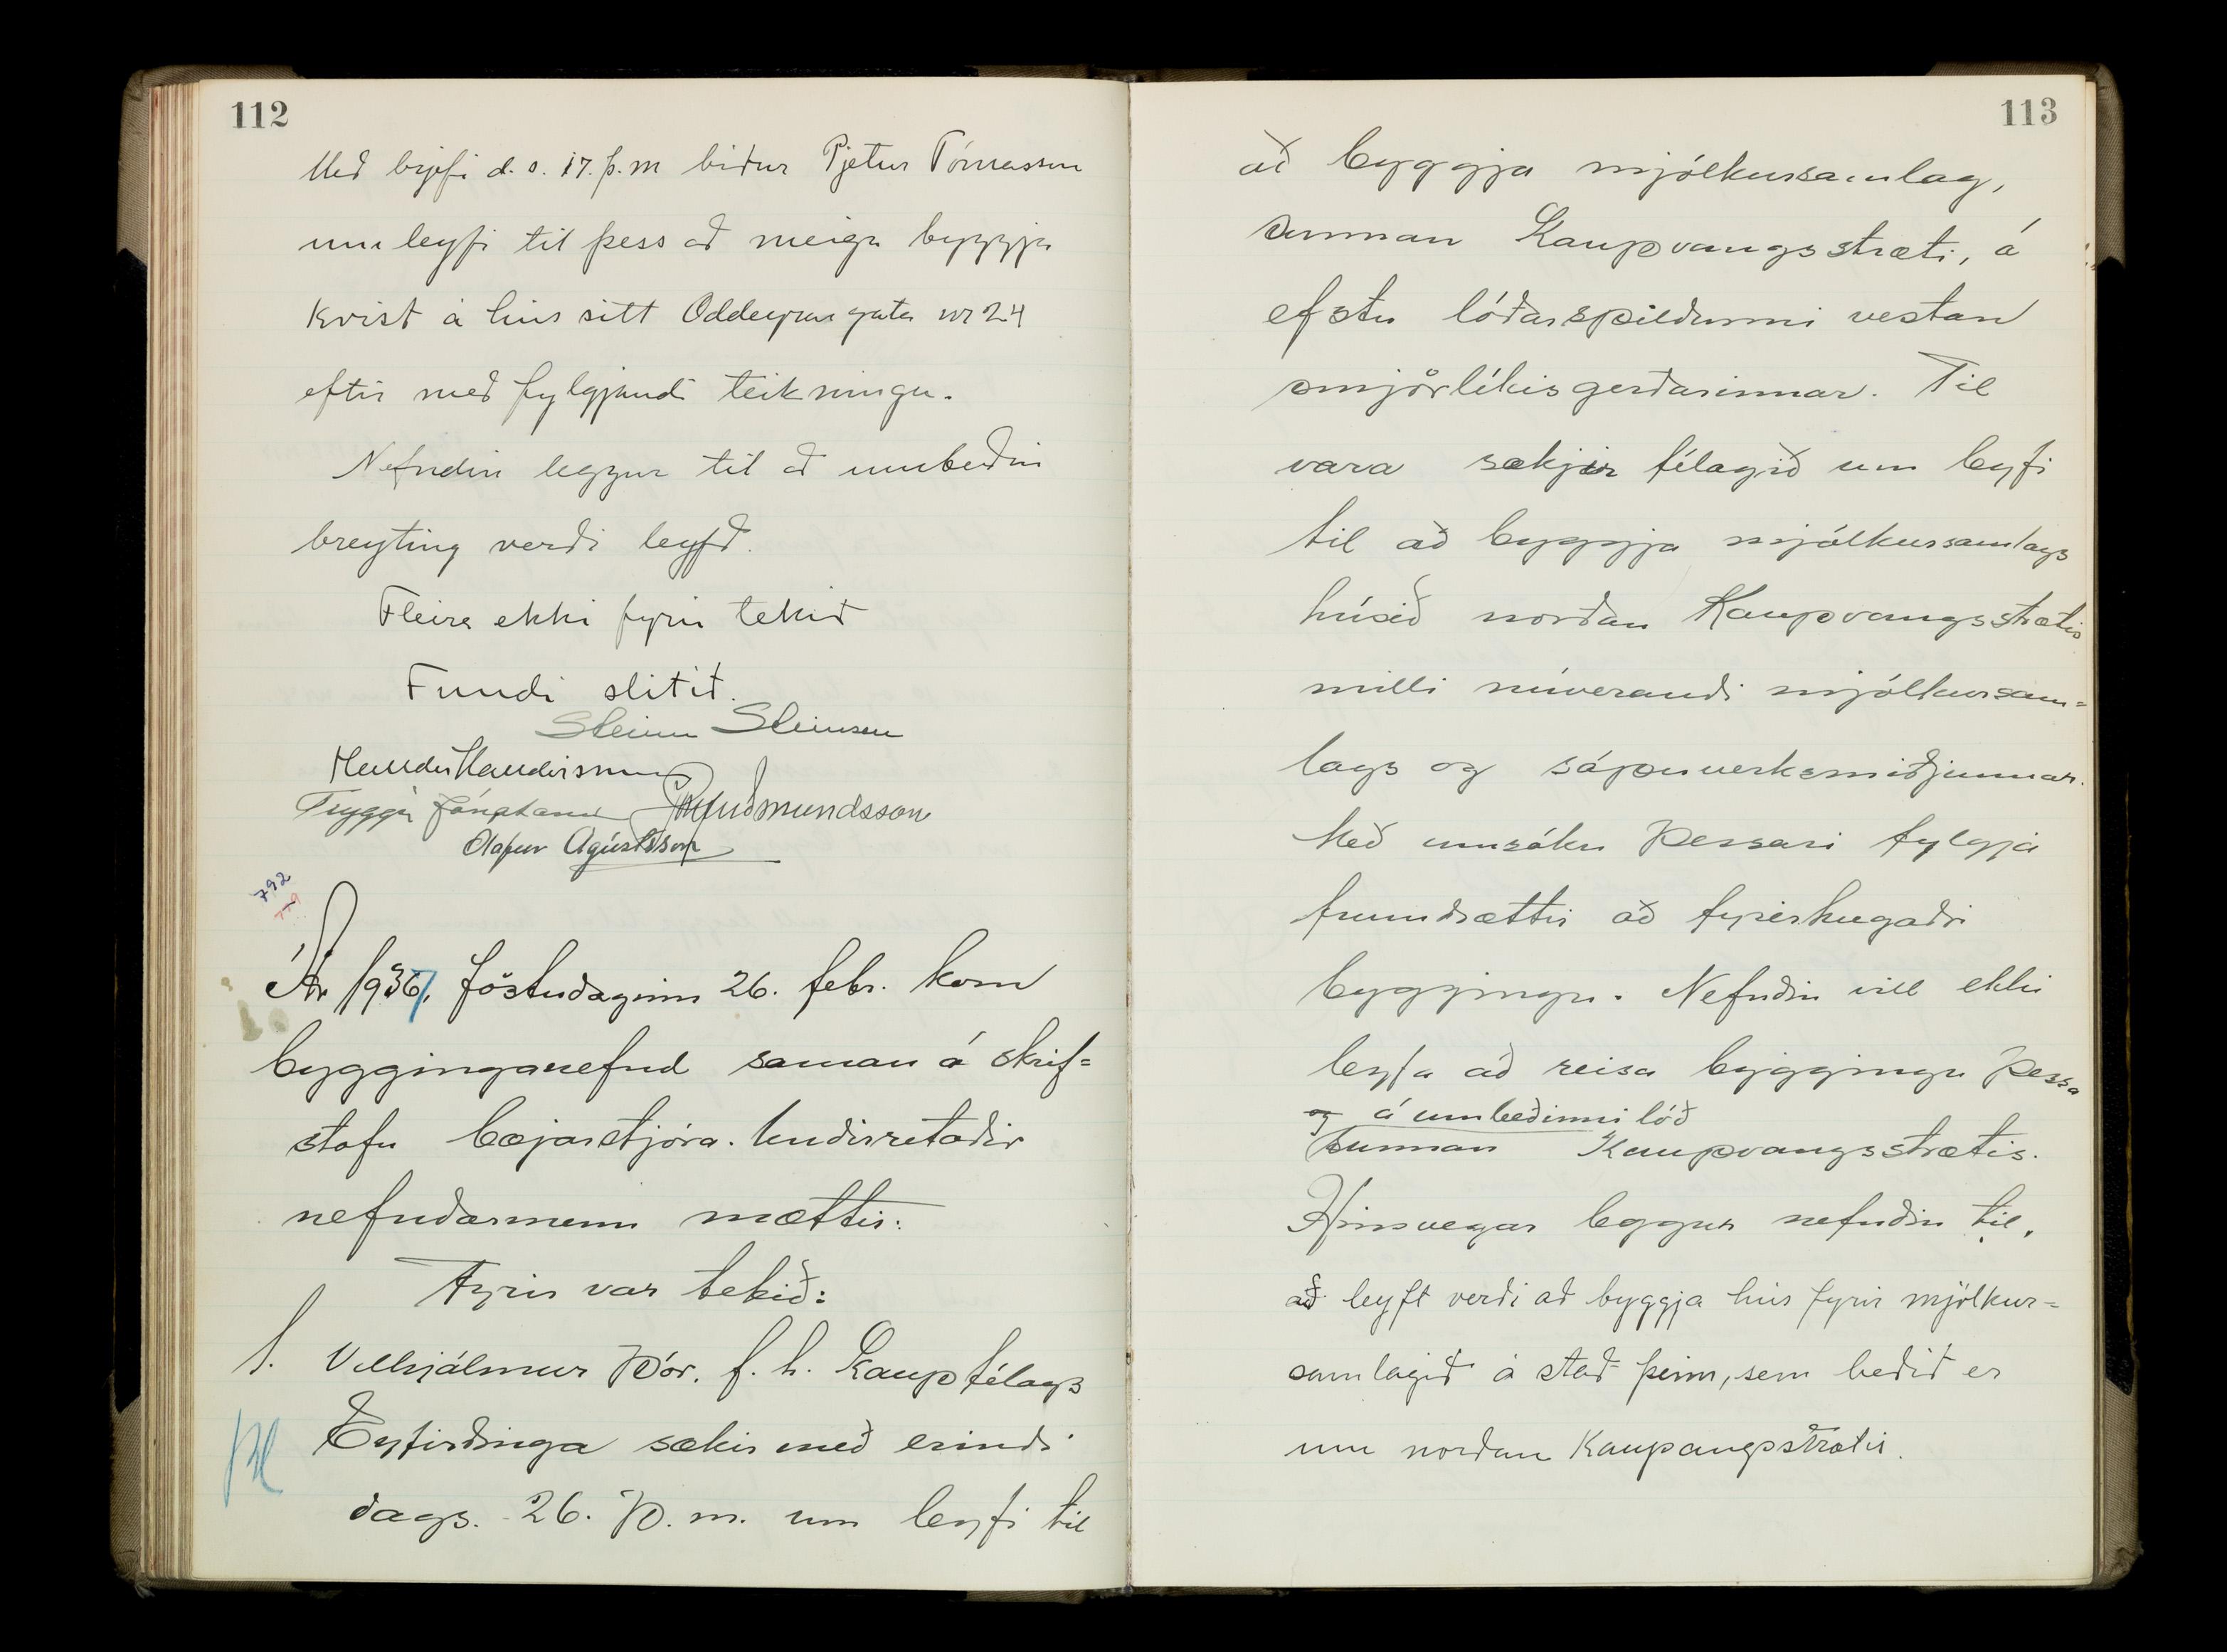 112
Með brjefi d. s. 17. þ. m biður Pjetur Tómasson
um leyfi til þess að meiga byggja
kvist á hús sitt Oddeyrargata nr 24
eftir með fylgjandi teikningu.
Nefndin leggur til að umbeðin
breyting verði leyfð.
Fleira ekki fyrir tekið
Fundi slitið.
Steinn Steinsen
Halldór Halldórsson
Tryggvi Jónatansson Guðmundsson
Ólafur Ágústsson
792
779
Ár 1937, föstudaginn 26. febr. kom
bygginganefnd saman á skrif=
stofu bæjarstjóra. Undirritaðir
nefndarmenn mættir:
Fyrir var tekið:
1. Vilhjálmur Þór, f. h. Kaupfélags
Eyfirðinga sækir með erindi
dags. 26. þ. m. um leyfi til
113
að byggja mjólkursamlag,
sunnan Kaupvangsstræti, á
efstu lóðarspildunni vestan
smjörlíkisgerðarinnar. Til
vara sækjir félagið um leyfi
til að byggja mjólkursamlags
húsið norðan Kaupvangsstrætis
milli núverandi mjólkursam=
lags og sápuverksmiðjunnar.
Með umsókn þessari fylgja
frumdrættir að fyrirhugaðri
byggingu. Nefndin vill ekki
leyfa að reisa byggingu þessa
og á umbeðinni lóð
sunnan Kaupvangsstrætis.
Hinsvegar leggur nefndin til,
að leyft verði að byggja hús fyrir mjólkur=
samlagið á stað þeim, sem beðið er
um norðan Kaupangsstrætis.